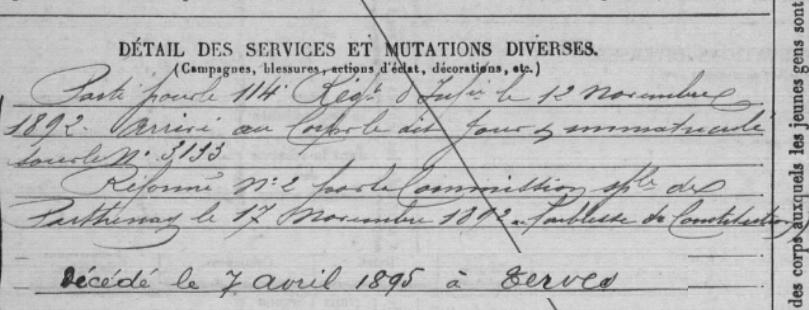 DÉTAIL DES SERVICES ET MUTATIONS DIVERSES.
(Campagnes, blessures, actions d'éclat, décorations, etc.)
Parti pour le 114e Régt d'Infie le 12 novembre
1892. Arrivé au Corps le dit jour & immatriculé
sous le No 3133
Réformé No 2 par la Commission sple de
Parthenay le 17 Novembre 1892 faiblesse de Constitution
Décédé le 7 avril 1895 à Terves
des corps auxquels les jeunes gens sont